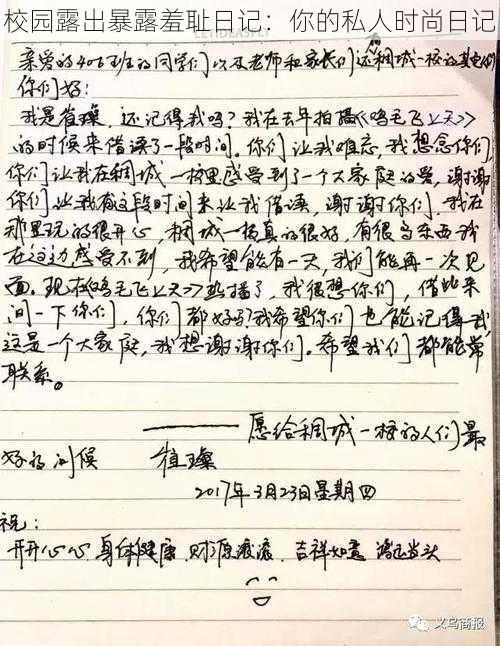 校园露出暴露羞耻日记：你的私人时尚日记
亲爱的406班的同学们以及老师和家长们还稠城一校的其他的
你们好：
我是崔璨，还记得我吗？我在去年拍摄《鸡毛飞上天》
的时候来借读了一段时间，你们让我难忘，我想念你们，
你们让我在稠城一校里感受到了一个大家庭的爱，谢谢
你们让我有这段时间来让我借读，谢谢你们，我在
那里玩的很开心，稠城一校真的很好，有很多东西我
在这边感受不到，我希望能有一天，我们能再一次见
面。现在《鸡毛飞上天》热播了，我很想你们，借此来
问一下你们，你们都好吗？我希望你们也能记得我
这是一个大家庭，我想谢谢你们。希望我们都能常
联系。
——愿给稠城一校的人们最
好的问候 崔璨
2017年3月23日星期四
祝：
开开心心 身体健康 财源滚滚 吉祥如意 鸿运当头
义乌商报